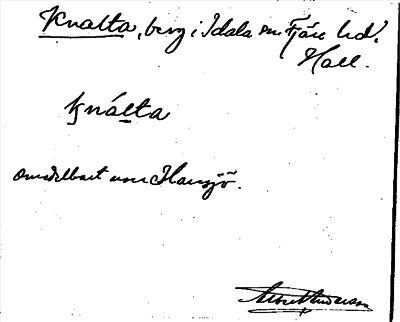 Knalta, berg i Idala sn Fjäre hd.
Hall.
knálta
omedelbart norr Hansjö.